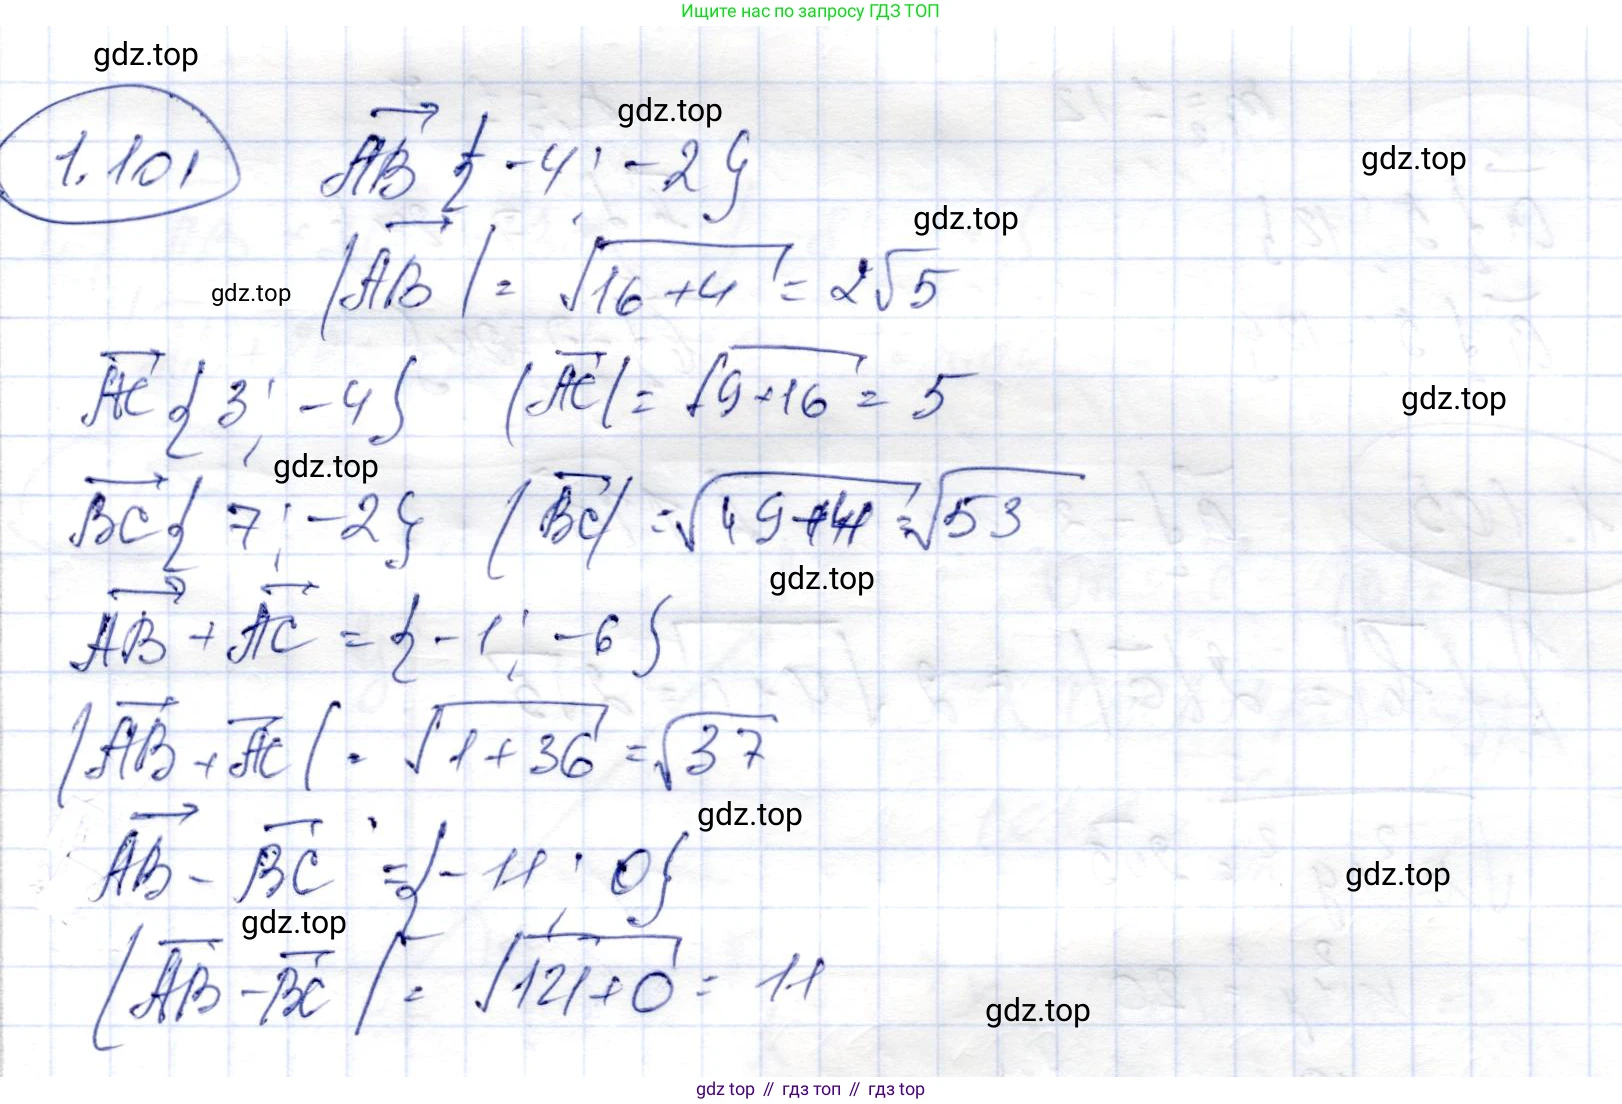 Ищите нас по запросу ГДЗ ТОП
gdz.top
1.101 AB {-4; -2} gdz.top
gdz.top
|AB| = √16+4 = 2√5 gdz.top
gdz.top
AC {3; -4} |AC| = √9+16 = 5 gdz.top
gdz.top
BC {7; -2} |BC| = √49+4 = √53
gdz.top
AB + AC = {-1; -6}
|AB + AC| = √1+36 = √37
gdz.top
AB - BC = {-11; 0} gdz.top
gdz.top
|AB - BC| = √121+0 = 11
gdz.top
gdz top // гдз топ // гдз top